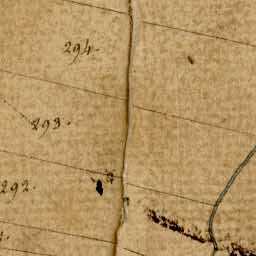 294.
293.
292.